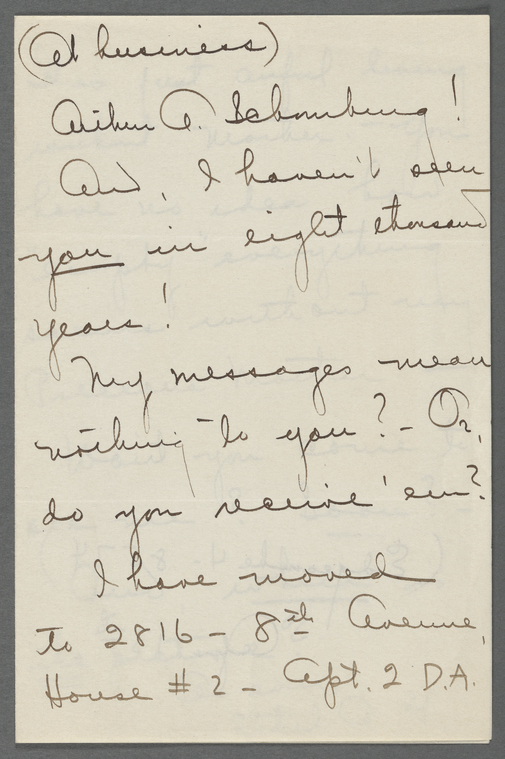 (At business)
Arthur A. Schomburg!
And, I haven't seen
you in eight thousand
years!
My messages mean
nothing to you? - Or,
do you receive 'em?
I have moved
to 2816 - 8th Avenue,
House # 2 - Apt. 2 D.A.